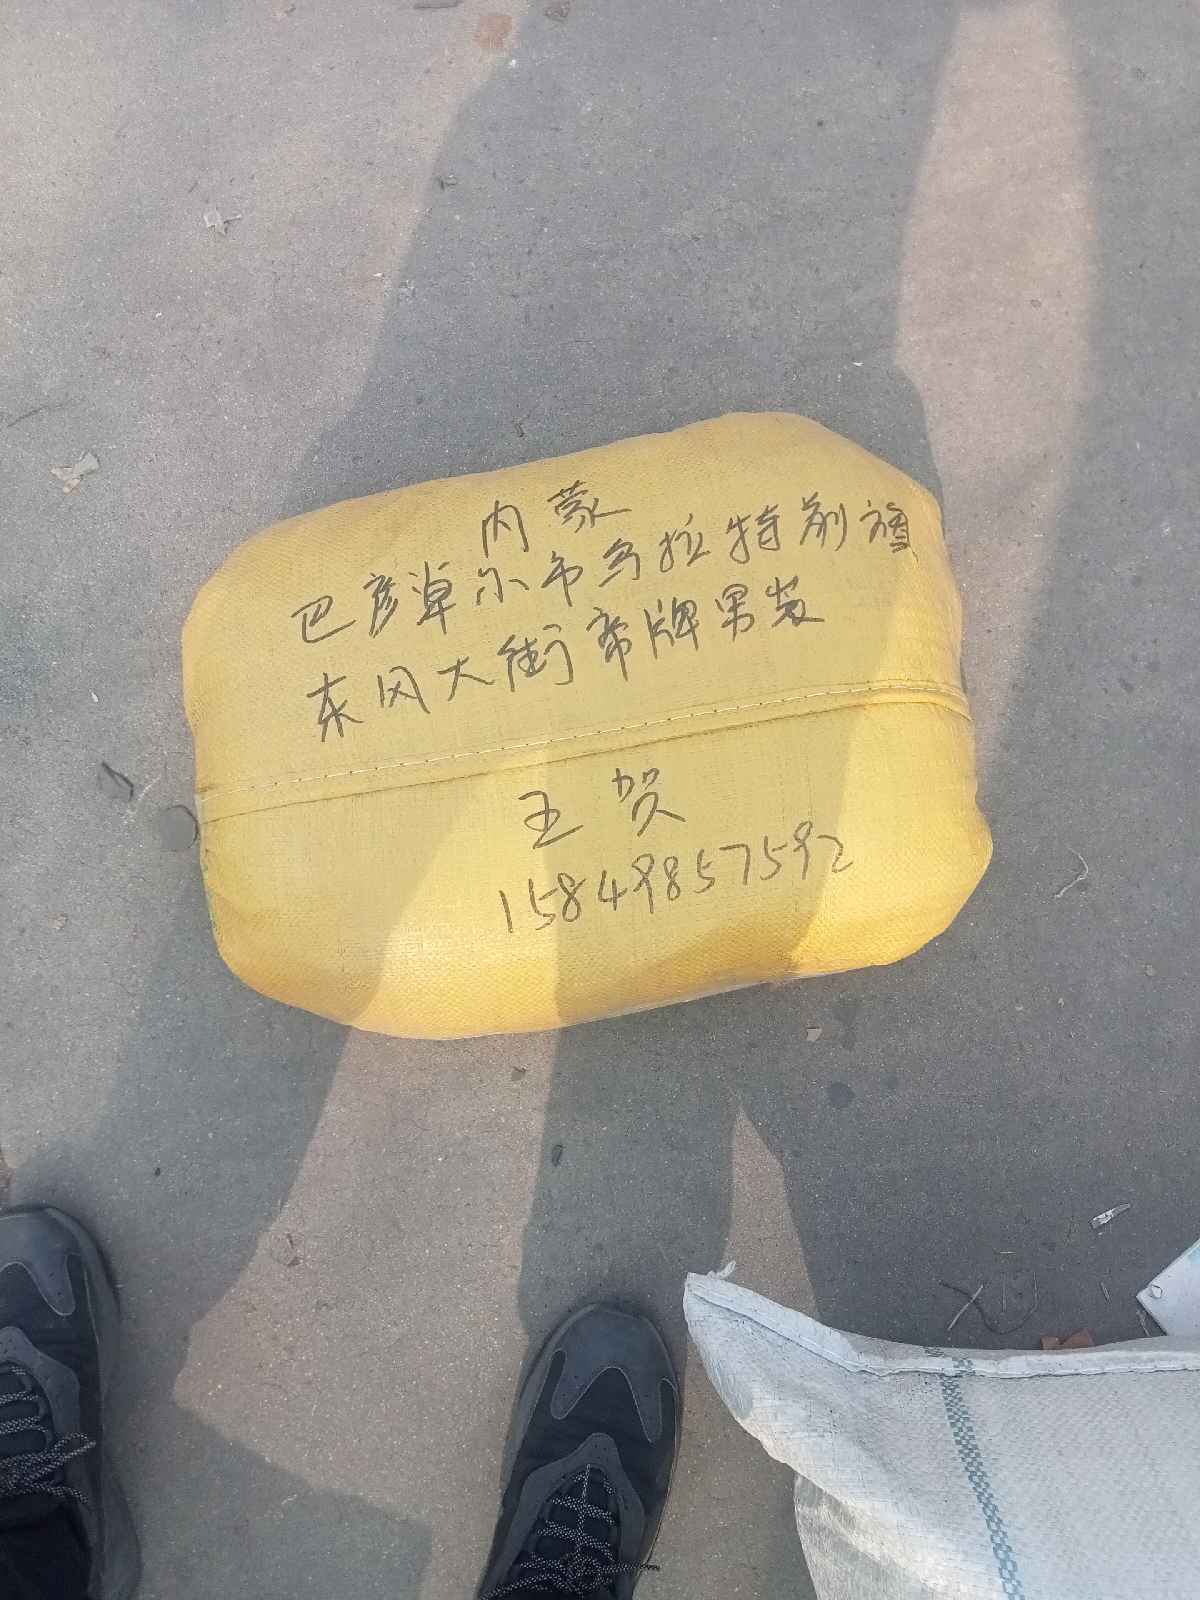 内蒙
巴彦淖尔市乌拉特前旗
东风大街帝牌男装
王贺
15849857592